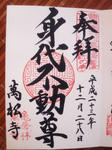 奉拝
平成二十三年
十二月二十八日
身代不動尊
萬松寺